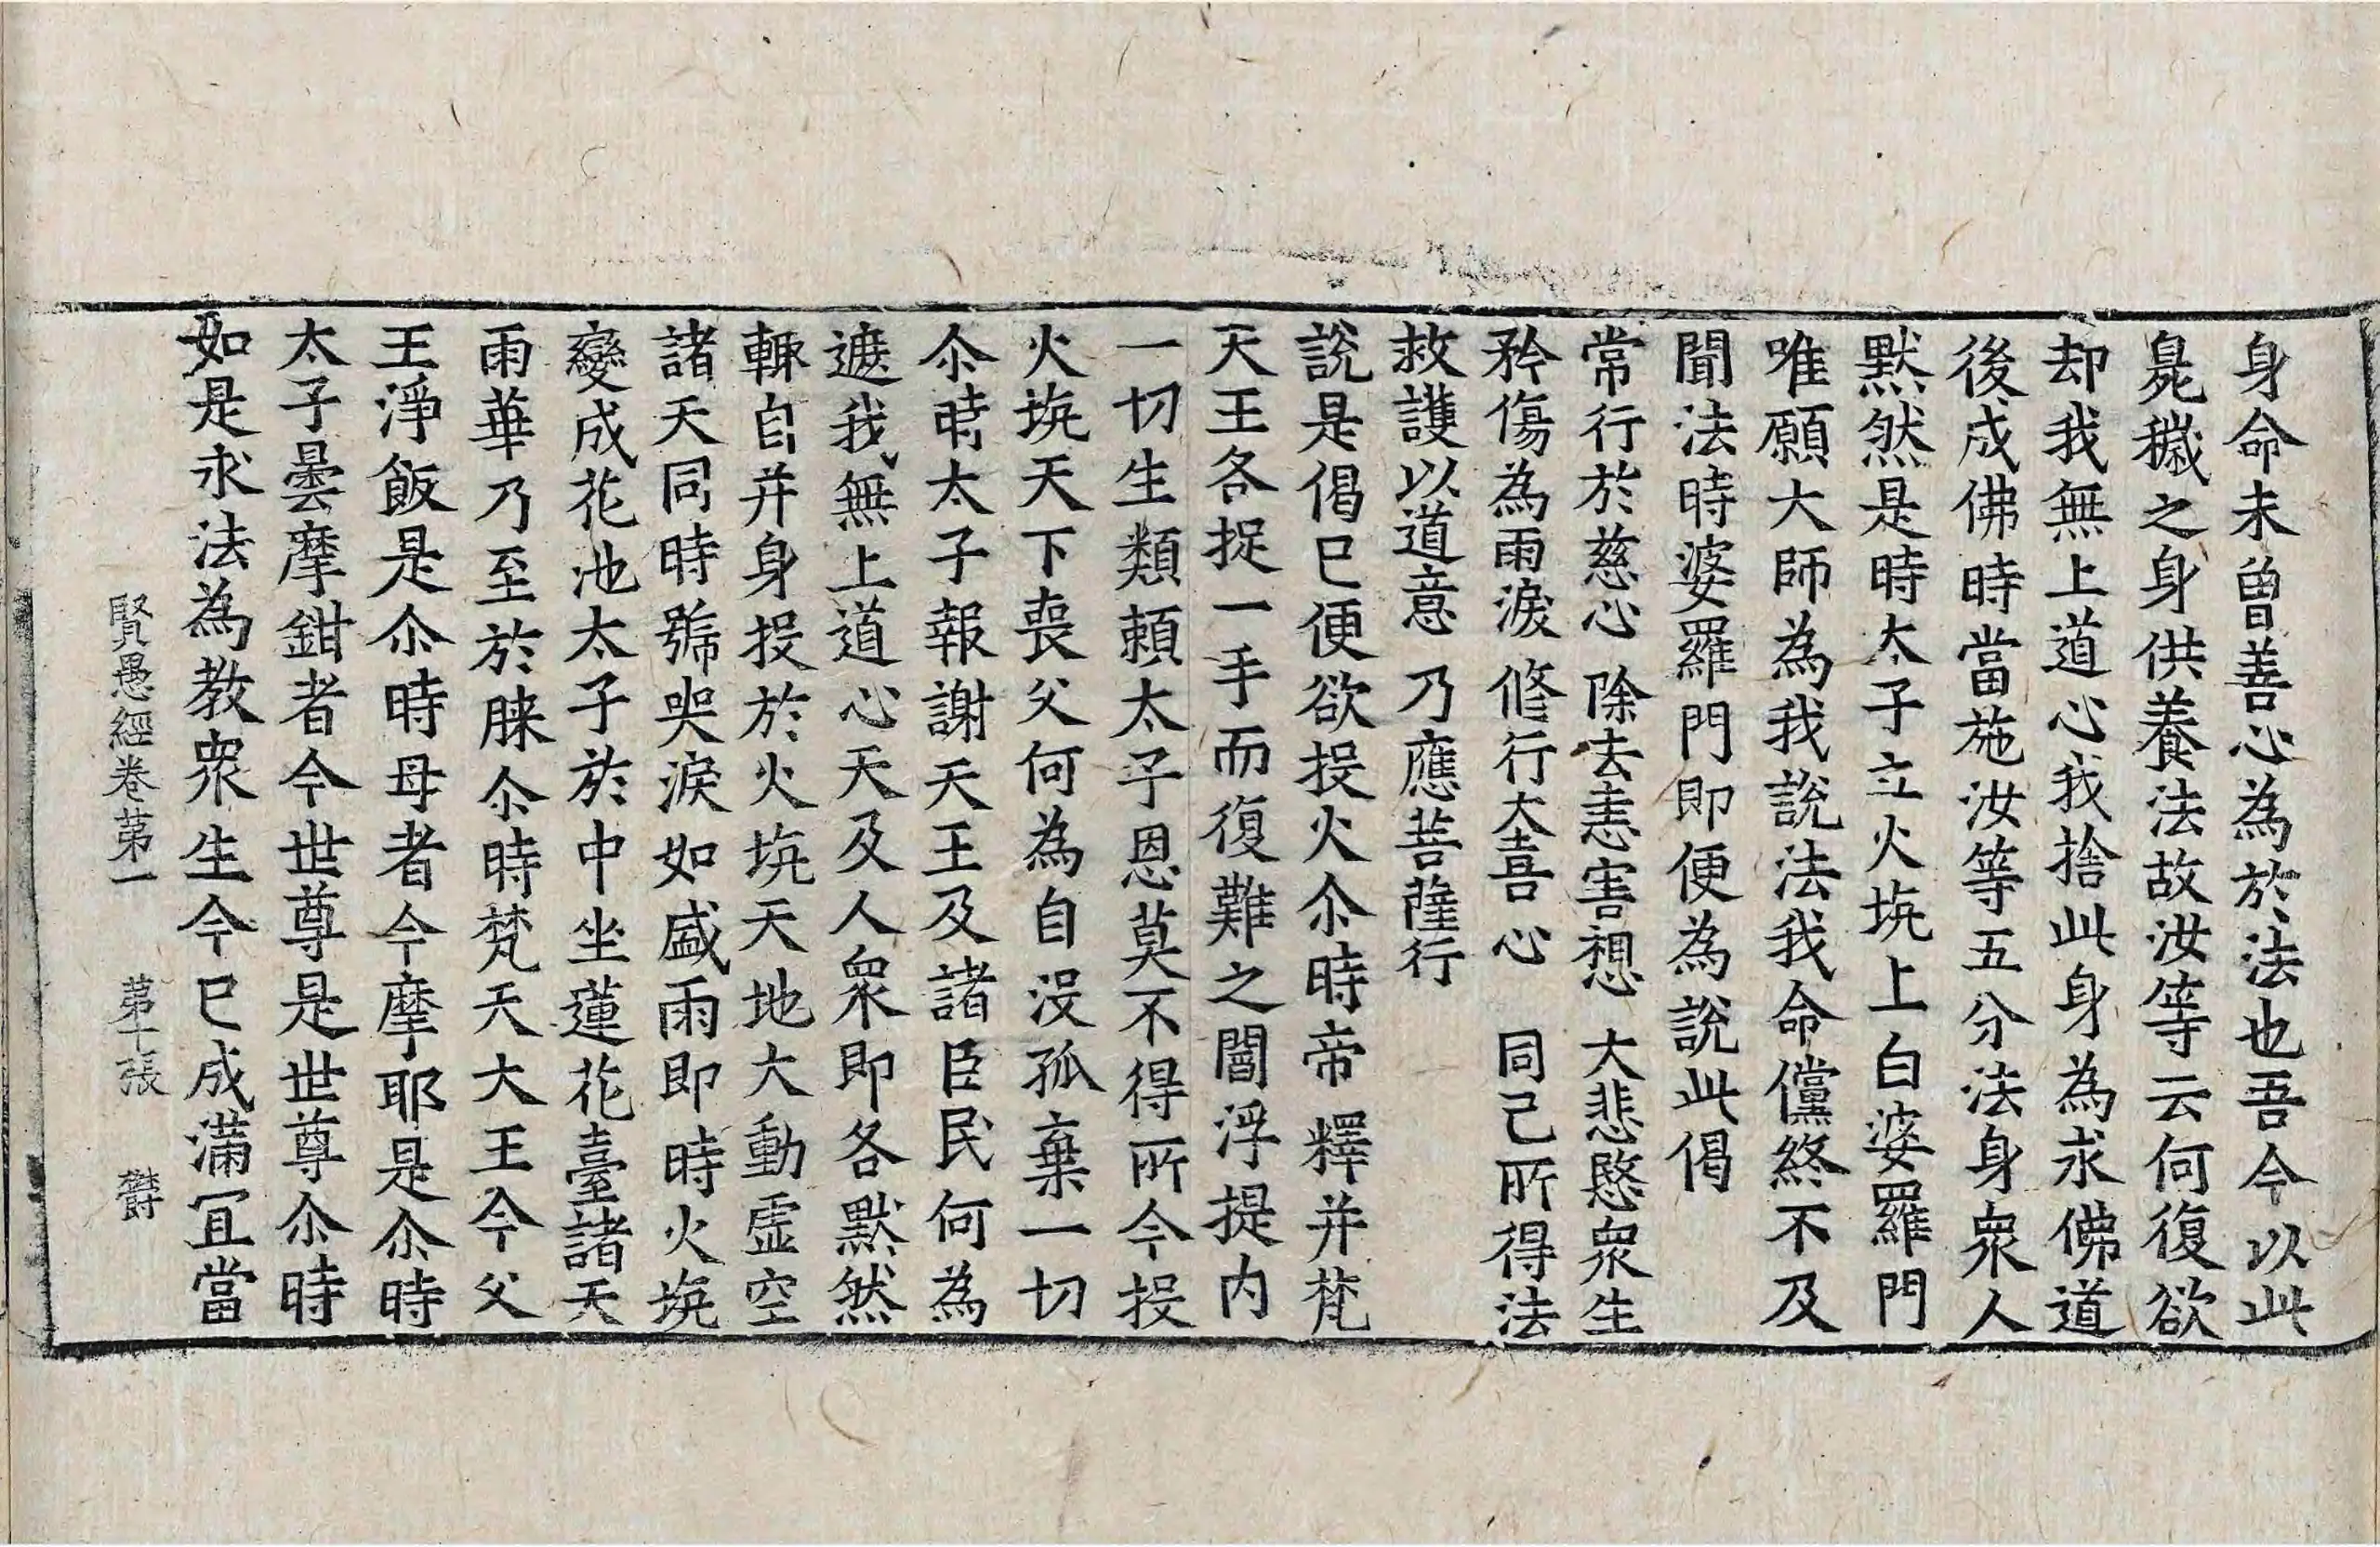 身命未曽善心為於法也吾今以此
臰穢之身供養法故汝等云何復欲
却我無上道心我捨此身為求佛道
後成佛時當施汝等五分法身衆人
默然是時太子立火坑上白婆羅門
唯願大師為我說法我命儻終不及
聞法時婆羅門即便為說此偈
常行於慈心 除去恚害想 大悲愍衆生
矜傷為雨淚 修行大喜心 同己所得法
救護以道意 乃應菩薩行
說是偈已便欲投火尒時帝釋并梵
天王各捉一手而復難之閻浮提内
一切生類頼太子恩莫不得所今投
火坑天下喪父何為自没孤棄一切
尒時太子報謝天王及諸臣民何為
遮我無上道心天及人衆即各默然
輙自并身投於火坑天地大動虛空
諸天同時號哭淚如盛雨即時火坑
變成花池太子於中坐蓮花臺諸天
雨華乃至於膝尒時梵天大王今父
王淨飯是尒時母者今摩耶是尒時
太子曇摩鉗者今世尊是世尊尒時
如是求法為教衆生今已成滿冝當
賢愚經卷苐一 苐十張 欝